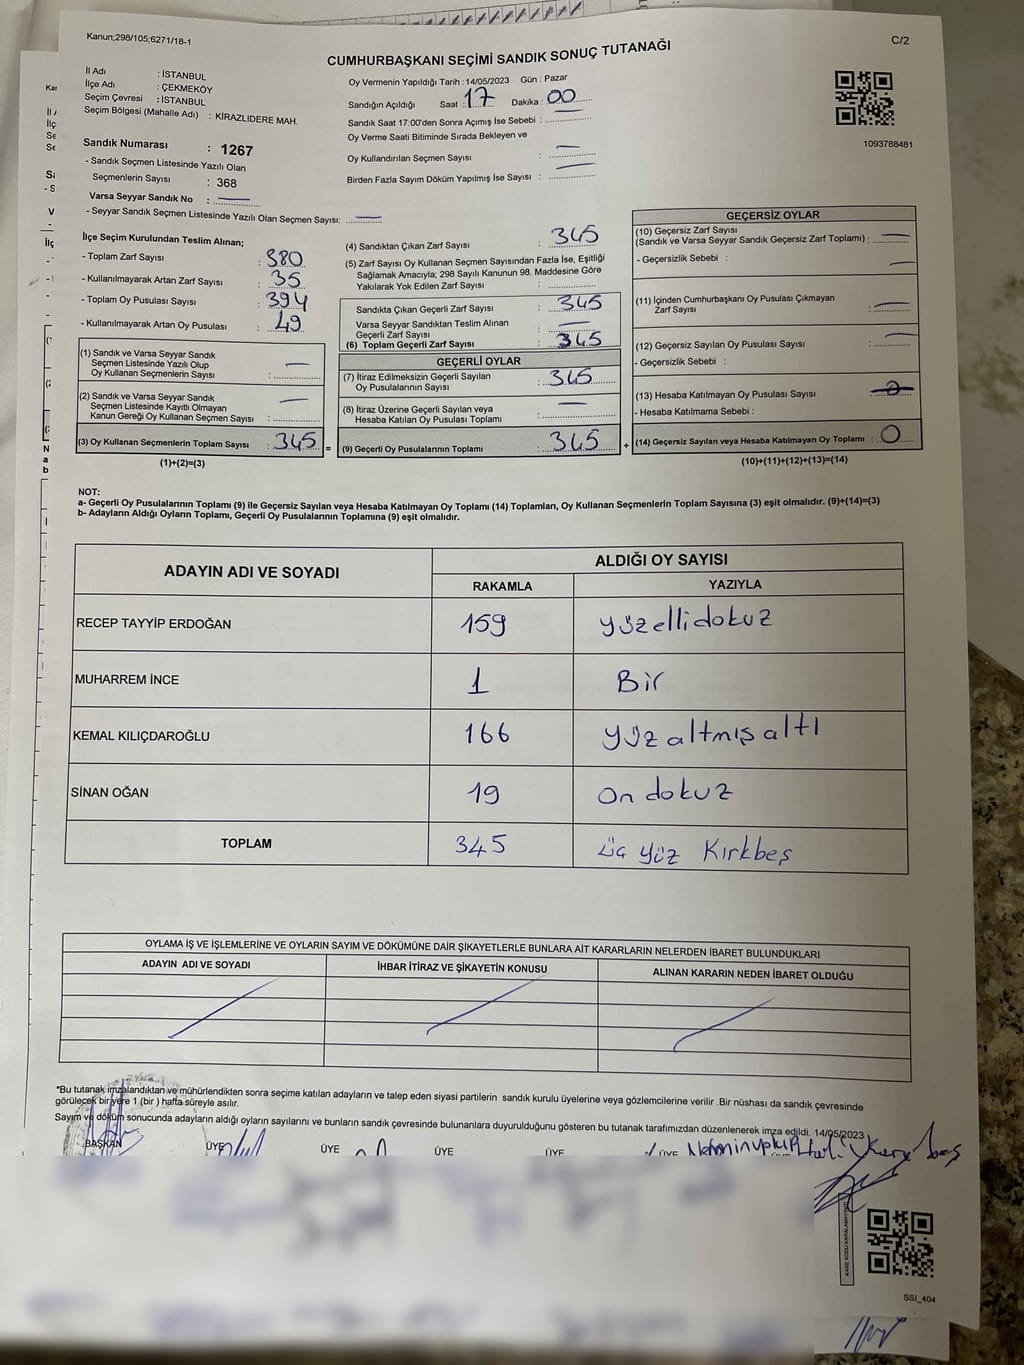 Kanun;298/105;6271/18-1
C/2
CUMHURBAŞKANI SEÇİMİ SANDIK SONUÇ TUTANAĞI
İl Adı : İSTANBUL
İlçe Adı : ÇEKMEKÖY
Seçim Çevresi : İSTANBUL
Seçim Bölgesi (Mahalle Adı) : KİRAZLIDERE MAH.
Sandık Numarası : 1267
- Sandık Seçmen Listesinde Yazılı Olan
Seçmenlerin Sayısı : 368
Varsa Seyyar Sandık No :
- Seyyar Sandık Seçmen Listesinde Yazılı Olan Seçmen Sayısı:
Oy Vermenin Yapıldığı Tarih : 14/05/2023 Gün : Pazar
Sandığın Açıldığı Saat : 17 Dakika : 00
Sandık Saat 17:00'den Sonra Açımış İse Sebebi :
Oy Verme Saati Bitiminde Sırada Bekleyen ve
Oy Kullandırılan Seçmen Sayısı :
Birden Fazla Sayım Döküm Yapılmış İse Sayısı :
1093788481
İlçe Seçim Kurulundan Teslim Alınan;
- Toplam Zarf Sayısı : 380
- Kullanılmayarak Artan Zarf Sayısı : 35
- Toplam Oy Pusulası Sayısı : 394
- Kullanılmayarak Artan Oy Pusulası : 49
(1) Sandık ve Varsa Seyyar Sandık
Seçmen Listesinde Yazılı Olup
Oy Kullanan Seçmenlerin Sayısı :
(2) Sandık ve Varsa Seyyar Sandık
Seçmen Listesinde Kayıtlı Olmayan
Kanun Gereği Oy Kullanan Seçmen Sayısı :
(3) Oy Kullanan Seçmenlerin Toplam Sayısı : 345
(1)+(2)=(3)
(4) Sandıktan Çıkan Zarf Sayısı : 345
(5) Zarf Sayısı Oy Kullanan Seçmen Sayısından Fazla İse, Eşitliği
Sağlamak Amacıyla; 298 Sayılı Kanunun 98. Maddesine Göre
Yakılarak Yok Edilen Zarf Sayısı :
Sandıkta Çıkan Geçerli Zarf Sayısı : 345
Varsa Seyyar Sandıktan Teslim Alınan
Geçerli Zarf Sayısı :
(6) Toplam Geçerli Zarf Sayısı : 345
GEÇERLİ OYLAR
(7) İtiraz Edilmeksizin Geçerli Sayılan
Oy Pusulalarının Sayısı : 345
(8) İtiraz Üzerine Geçerli Sayılan veya
Hesaba Katılan Oy Pusulası Toplamı :
= (9) Geçerli Oy Pusulalarının Toplamı : 345 +
GEÇERSİZ OYLAR
(10) Geçersiz Zarf Sayısı
(Sandık ve Varsa Seyyar Sandık Geçersiz Zarf Toplamı) :
- Geçersizlik Sebebi :
(11) İçinden Cumhurbaşkanı Oy Pusulası Çıkmayan
Zarf Sayısı :
(12) Geçersiz Sayılan Oy Pusulası Sayısı :
- Geçersizlik Sebebi :
(13) Hesaba Katılmayan Oy Pusulası Sayısı :
- Hesaba Katılmama Sebebi :
(14) Geçersiz Sayılan veya Hesaba Katılmayan Oy Toplamı : 0
(10)+(11)+(12)+(13)=(14)
NOT:
a- Geçerli Oy Pusulalarının Toplamı (9) ile Geçersiz Sayılan veya Hesaba Katılmayan Oy Toplamı (14) Toplamları, Oy Kullanan Seçmenlerin Toplam Sayısına (3) eşit olmalıdır. (9)+(14)=(3)
b- Adayların Aldığı Oyların Toplamı, Geçerli Oy Pusulalarının Toplamına (9) eşit olmalıdır.
ADAYIN ADI VE SOYADI
ALDIĞI OY SAYISI
RAKAMLA YAZIYLA
RECEP TAYYİP ERDOĞAN 159 yüzellidokuz
MUHARREM İNCE 1 Bir
KEMAL KILIÇDAROĞLU 166 yüzaltmışaltı
SİNAN OĞAN 19 on dokuz
TOPLAM 345 üç yüz Kırkbeş
OYLAMA İŞ VE İŞLEMLERİNE VE OYLARIN SAYIM VE DÖKÜMÜNE DAİR ŞİKAYETLERLE BUNLARA AİT KARARLARIN NELERDEN İBARET BULUNDUKLARI
ADAYIN ADI VE SOYADI İHBAR İTİRAZ VE ŞİKAYETİN KONUSU ALINAN KARARIN NEDEN İBARET OLDUĞU
*Bu tutanak imzalandıktan ve mühürlendikten sonra seçime katılan adayların ve talep eden siyasi partilerin sandık kurulu üyelerine veya gözlemcilerine verilir .Bir nüshası da sandık çevresinde
görülecek bir yere 1 (bir ) hafta süreyle asılır.
Sayım ve döküm sonucunda adayların aldığı oyların sayılarını ve bunların sandık çevresinde bulunanlara duyurulduğunu gösteren bu tutanak tarafımızdan düzenlenerek imza edildi. 14/05/2023
BAŞKAN ÜYE ÜYE ÜYE ÜYE ÜYE
SSI_404